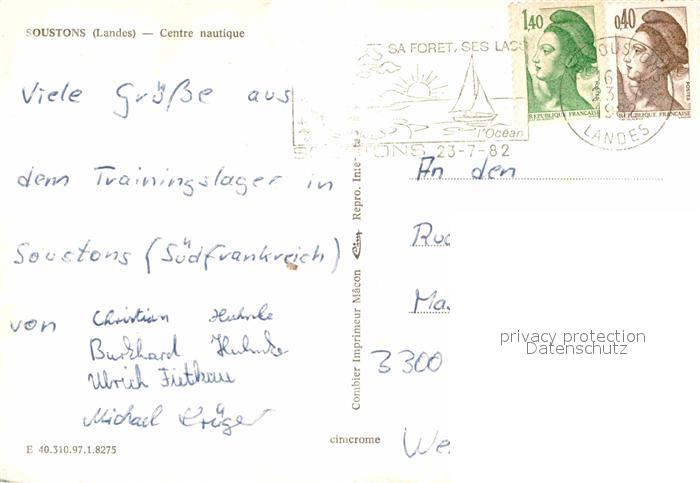 SOUSTONS (Landes) — Centre nautique
Viele Grüße aus
dem Trainingslager in
Soustons (Südfrankreich)
von Christian Huhnke
Burkhard Huhnke
Ulrich Fietkau
Michael Krüger
E 40.310.97.1.8275
Combier Imprimeur Mâcon Cim Repro. Inter
cimcrome
SA FORET, SES LACS
l'Océan
SOUSTONS 23-7-82
1,40
REPUBLIQUE FRANÇAISE
0,40
POSTES
REPUBLIQUE FRANÇAISE
LANDES
An den
Ma
3300
We
privacy protection
Datenschutz